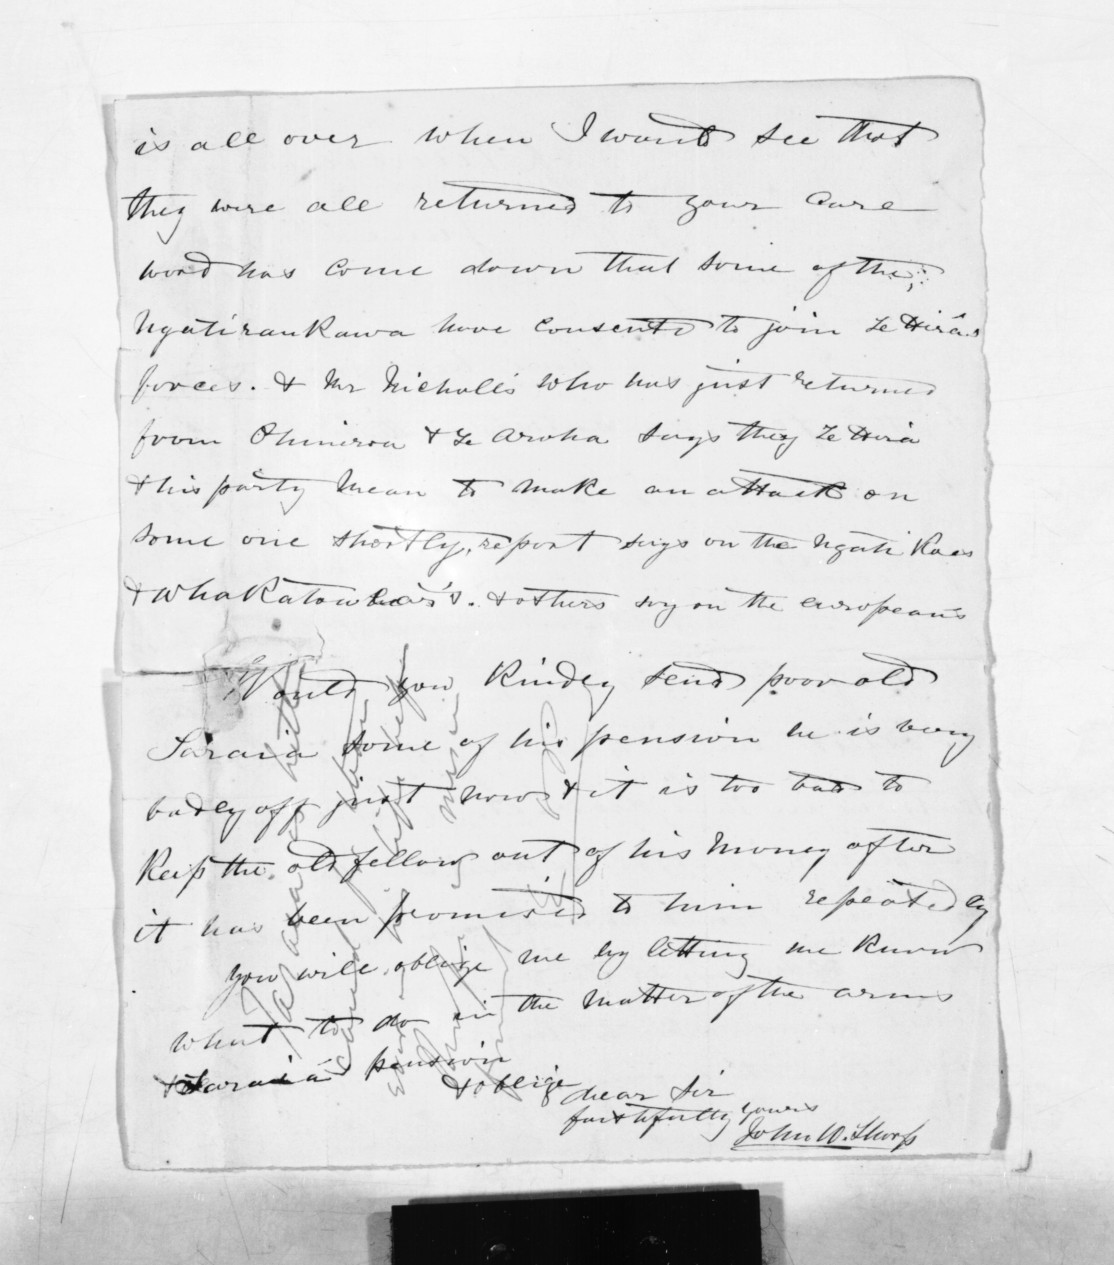 is all over when I would see that
they were all returned to your care
word has come down that some of the
Ngatiraukawa have consented to join Te Hira's
forces. & Mr Nicholls who has just returned
from Ohineroa & Te Aroha says they Te Hira
& his party Mean to make an attack on
some one shortly, report says on the Ngati Paoa
& Whakatowhea's. & others say on the europeans
Would you kindly send poor old
Taraia some of his pension he is very
badly off just now & it is too bad to
keep the old fellow out of his Money after
it has been promised to him repeatedly
you will oblige me by letting me know
what to do in the matter of the arms
& Taraia's pension
& oblige
dear Sir
faithfully yours
John W. Thorp